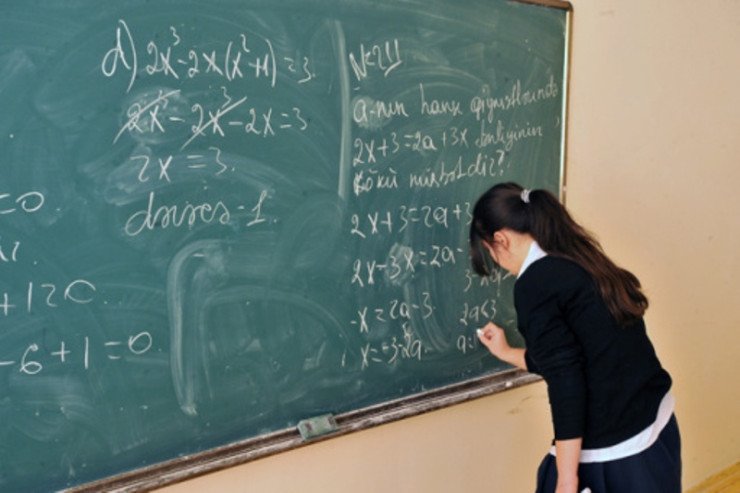 =0.
+1=0.
-6+1=0.
d) 2x³-2x(x²+1)=3.
2x³-2x³-2x=3
2x=3.
№211
a-nın hansı qiymətlərində
2x+3=2a+3x tənliyinin
kökü müsbətdir?
2x+3=2a+3
2x-3x=2a-
3-2a
-x=2a-3
2a<3
x=3-2a.
a